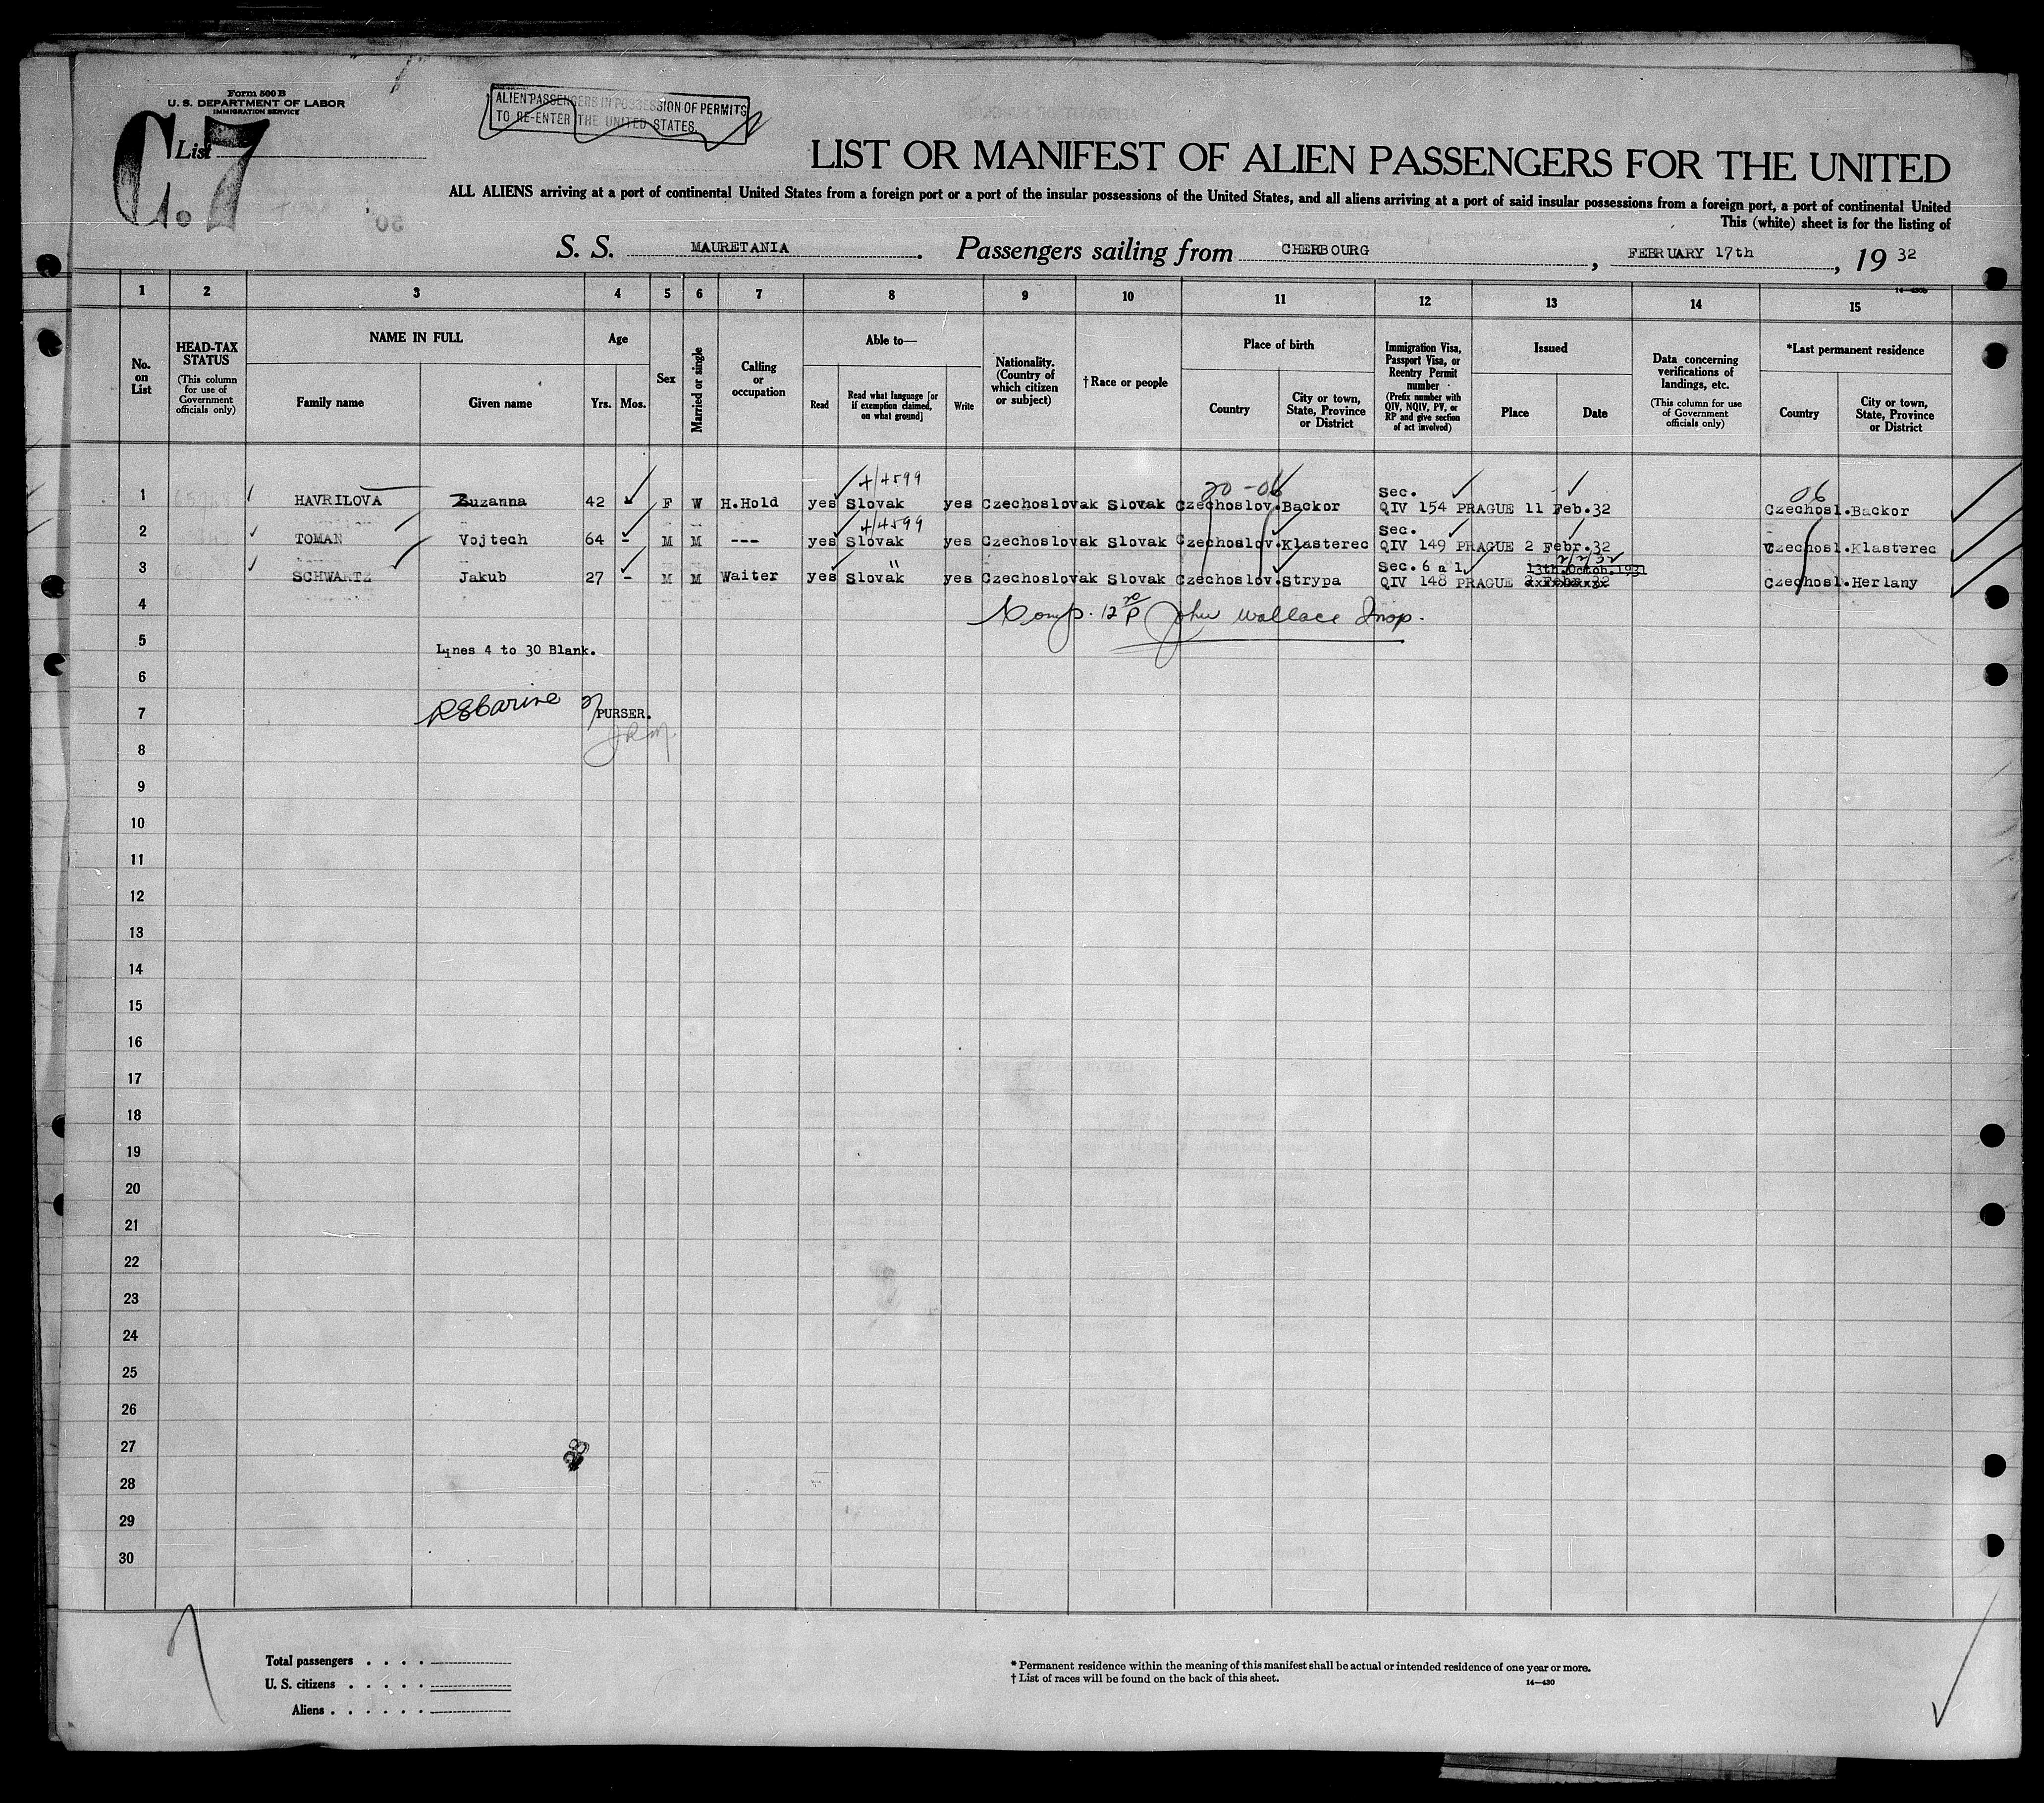 Form 500 B
U. S. DEPARTMENT OF LABOR
IMMIGRATION SERVICE
List
C.7
ALIEN PASSENGERS IN POSSESSION OF PERMITS
TO RE-ENTER THE UNITED STATES.
LIST OR MANIFEST OF ALIEN PASSENGERS FOR THE UNITED
ALL ALIENS arriving at a port of continental United States from a foreign port or a port of the insular possessions of the United States, and all aliens arriving at a port of said insular possessions from a foreign port, a port of continental United
This (white) sheet is for the listing of
S. S. MAURETANIA. Passengers sailing from CHERBOURG, FEBRUARY 17th, 19 32
1 2 3 4 5 6 7 8 9 10 11 12 13 14 15
No. on List
HEAD-TAX STATUS
(This column for use of Government officials only)
NAME IN FULL
Family name
Given name
Age
Yrs. Mos.
Sex
Married or single
Calling or occupation
Able to—
Read
Read what language [or if exemption claimed, on what ground]
Write
Nationality. (Country of which citizen or subject)
†Race or people
Place of birth
Country
City or town, State, Province or District
Immigration Visa, Passport Visa, or Reentry Permit number
(Prefix number with QIV, NQIV, PV, or RP and give section of act involved)
Issued
Place
Date
Data concerning verifications of landings, etc.
(This column for use of Government officials only)
*Last permanent residence
Country
City or town, State, Province or District
4/4599 20-06 Sec. 06
1 HAVRILOVA Zuzanna 42 F W H.Hold yes Slovak yes Czechoslovak Slovak Czechoslov. Backor QIV 154 PRAGUE 11 Feb.32 Czechosl. Backor
4/4599 Sec.
2 TOMAN Vojtech 64 - M M --- yes Slovak yes Czechoslovak Slovak Czechoslov. Klasterec QIV 149 PRAGUE 2 Febr.32 Czechosl. Klasterec
" Sec. 6 a 1 2/2/32 13th.Octob.1931
3 SCHWARTZ Jakub 27 - M M Waiter yes Slovak yes Czechoslovak Slovak Czechoslov. Strypa QIV 148 PRAGUE 2 Febr.32 Czechosl. Herlany
4 Comp. 12 P John Wallace Insp.
5 Lines 4 to 30 Blank.
6
7 PURSER.
8
9
10
11
12
13
14
15
16
17
18
19
20
21
22
23
24
25
26
27
28
29
30
Total passengers . . . .
U. S. citizens . . . . .
Aliens . . . . . .
* Permanent residence within the meaning of this manifest shall be actual or intended residence of one year or more.
† List of races will be found on the back of this sheet.
14—430